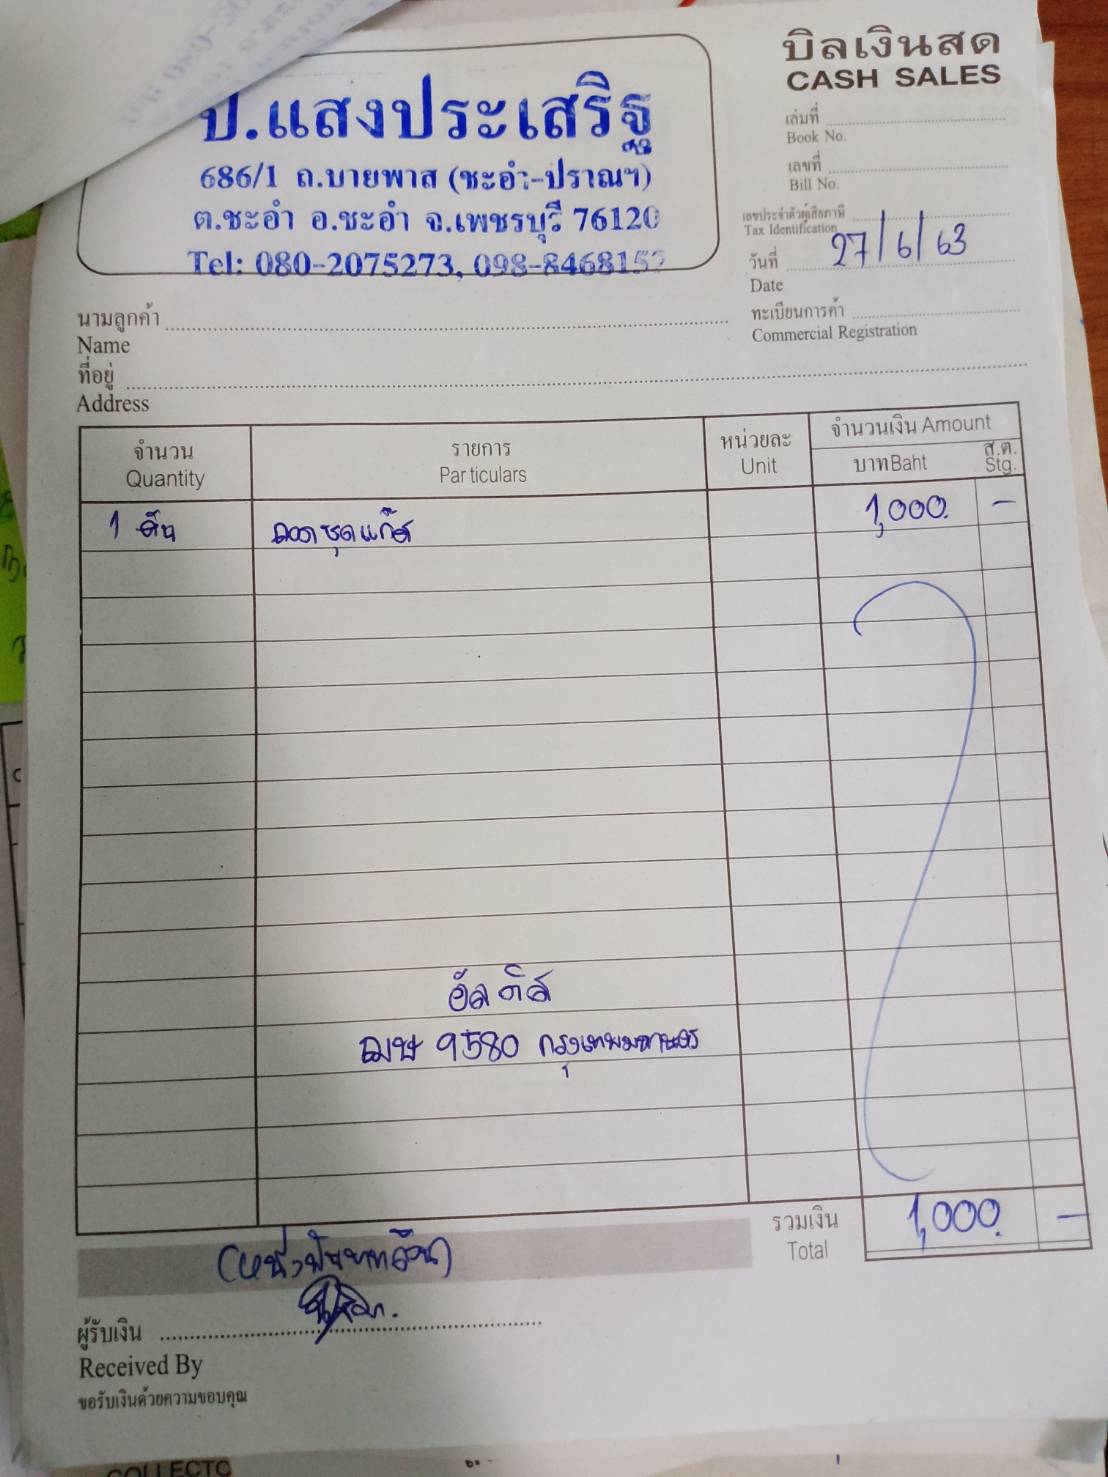 บิลเงินสด
CASH SALES
ป.แสงประเสริฐ
686/1 ถ.บายพาส (ชะอำ-ปราณฯ)
ต.ชะอำ อ.ชะอำ จ.เพชรบุรี 76120
Tel: 080-2075273, 098-8468152
เล่มที่
Book No.
เลขที่
Bill No.
เลขประจำตัวผู้เสียภาษี
Tax Identification
วันที่ 27/6/63
Date
ทะเบียนการค้า
Commercial Registration
นามลูกค้า
Name
ที่อยู่
Address
จำนวน รายการ หน่วยละ จำนวนเงิน Amount
Quantity Particulars Unit บาท Baht ส.ต. Stg.
1 คัน ถอดชุดแก๊ส 1,000 -
อัลติส
ฌษ 9580 กรุงเทพมหานคร
รวมเงิน 1,000 -
Total
(หนึ่งพันบาทถ้วน)
ผู้รับเงิน
Received By
ขอรับเงินด้วยความขอบคุณ